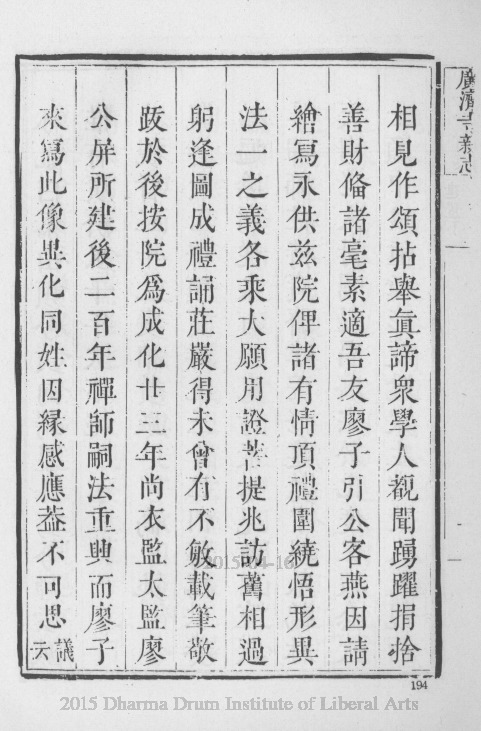 廣濟寺新志
相見作頌拈舉眞諦衆學人覩聞踴躍捐捨
善財俻諸毫素適吾友廖子引公客燕因請
繪寫永供茲院俾諸有情頂禮圍繞悟形異
法一之義各乘大願用證菩提兆訪舊相過
躬逢圖成禮誦莊嚴得未曾有不敏載筆敬
跋於後按院爲成化廿三年尚衣監太監廖
公屏所建後二百年禪師嗣法重興而廖子
來寫此像異化同姓因緣感應葢不可思議云
2015-04-16
194
2015 Dharma Drum Institute of Liberal Arts